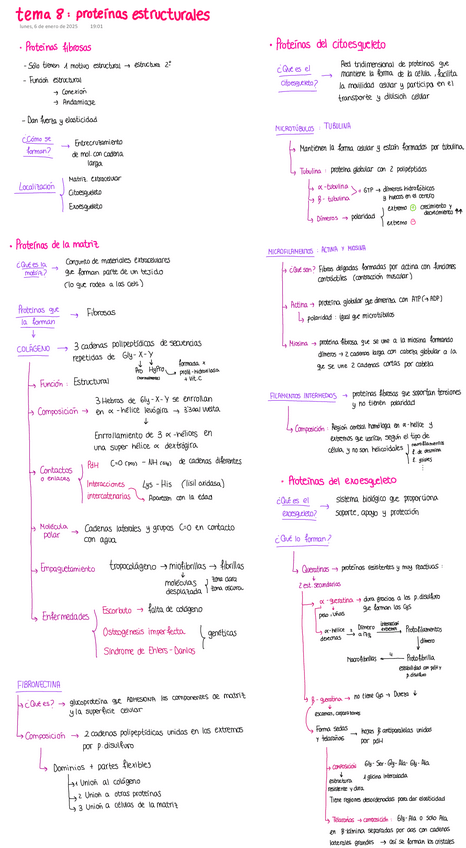 tema 8: proteínas estructurales
lunes, 6 de enero de 2025 19:01
• Proteínas fibrosas
- Sólo tienen 1 motivo estructural → estructura 2ª
- Función estructural
→ Conexión
→ Andamiaje
- Dan fuerza y elasticidad
¿Cómo se forman? → Entrecruzamiento
de mol. con cadena
larga
Localización
Matriz extracelular
Citoesqueleto
Exoesqueleto
• Proteínas de la matriz
¿Qué es la matriz? → Conjunto de materiales extracelulares
que forman parte de un tejido
(lo que rodea a las cels)
Proteínas que la forman → Fibrosas
COLÁGENO → 3 cadenas polipeptídicas de secuencias
repetidas de Gly-X-Y
Pro HyPro
formada x
prolil-hidroxilasa
+ vit. C
→ Función: Estructural
→ Composición → 3 Hebras de Gly-X-Y se enrollan
en α-hélice levógira → 3'3aa/vuelta
Enrollamiento de 3 α-hélices en
una super hélice α dextrógira
→ Contactos o enlaces
PdH C=O - NH de cadenas diferentes
Interacciones intercatenarias
Lys - His (lisil oxidasa)
Aparecen con la edad
→ Molécula polar → Cadenas laterales y grupos C=O en contacto
con agua
→ Empaquetamiento tropocolágeno → miofibrillas → fibrillas
moléculas
desplazadas
zona clara
zona oscura
→ Enfermedades
Escorbuto → falta de colágeno
Osteogénesis imperfecta
Síndrome de Ehlers-Danlos
genéticas
FIBRONECTINA
→ ¿Qué es? → glucoproteína que ADHESIONA los componentes de matriz
y la superficie celular
→ Composición → 2 cadenas polipeptídicas unidas en los extremos
por p. disulfuro
→ Dominios + partes flexibles
→ 1 Unión al colágeno
→ 2 Unión a otras proteínas
→ 3 Unión a células de la matriz
• Proteínas del citoesqueleto
¿Qué es el citoesqueleto? → Red tridimensional de proteínas que
mantiene la forma de la célula, facilita
la movilidad celular y participa en el
transporte y división celular
MICROTÚBULOS: TUBULINA
→ Mantienen la forma celular y están formados por tubulina.
→ Tubulina: proteína globular con 2 polipéptidos
→ α-tubulina
→ β-tubulina
+ GTP → dímeros hidrofóbicos
→ Dímeros → polaridad
extremo ⊕ crecimiento y
extremo ⊖
MICROFILAMENTOS: ACTINA Y MIOSINA
→ ¿Qué son? Fibras delgadas formadas por actina con funciones
contráctiles (contracción muscular)
→ Actina → Proteína globular que dimeriza con ATP (→ ADP)
→ polaridad: igual que microtúbulos
→ Miosina → proteína fibrosa, que se une a la miosina formando
dímeros → 2 cadenas larga, con cabeza globular a la
que se une 2 cadenas cortas por cabeza
FILAMENTOS INTERMEDIOS → proteínas fibrosas que soportan tensiones
y no tienen polaridad
→ Composición: Región central homóloga en α-hélice y
extremos que varían según el tipo de
célula, y no son helicoidales
neurofilamentos
f. de desmina
f. gliales
• Proteínas del exoesqueleto
¿Qué es el exoesqueleto? → sistema biológico que proporciona
soporte, apoyo y protección
¿Qué lo forman?
→ Queratinas → proteínas resistentes y muy reactivas:
2 est. secundarias
→ α-queratina → dura gracias a los p. disulfuro
que forman las Cys
pelo, uñas
→ α-hélice → Dímero → Protofilamentos
dímero
Macrofibrillas ← Protofibrilla
estabilidad con pdH y
p. disulfuro
→ β-queratina → no tiene Cys → Dureza ↓
escamas, caparazones
→ Forma sedas y telarañas → hojas β antiparalelas unidas
por pdH
→ composición Gly-Ser-Gly-Ala-Gly-Ala
estructura 1 glicina intercalada
resistente y dura
Tiene regiones desordenadas para dar elasticidad
→ Telarañas → composición: Gly-Ala o solo Ala
en β-lámina separadas por aas con cadenas
laterales grandes → así se forman los cristales